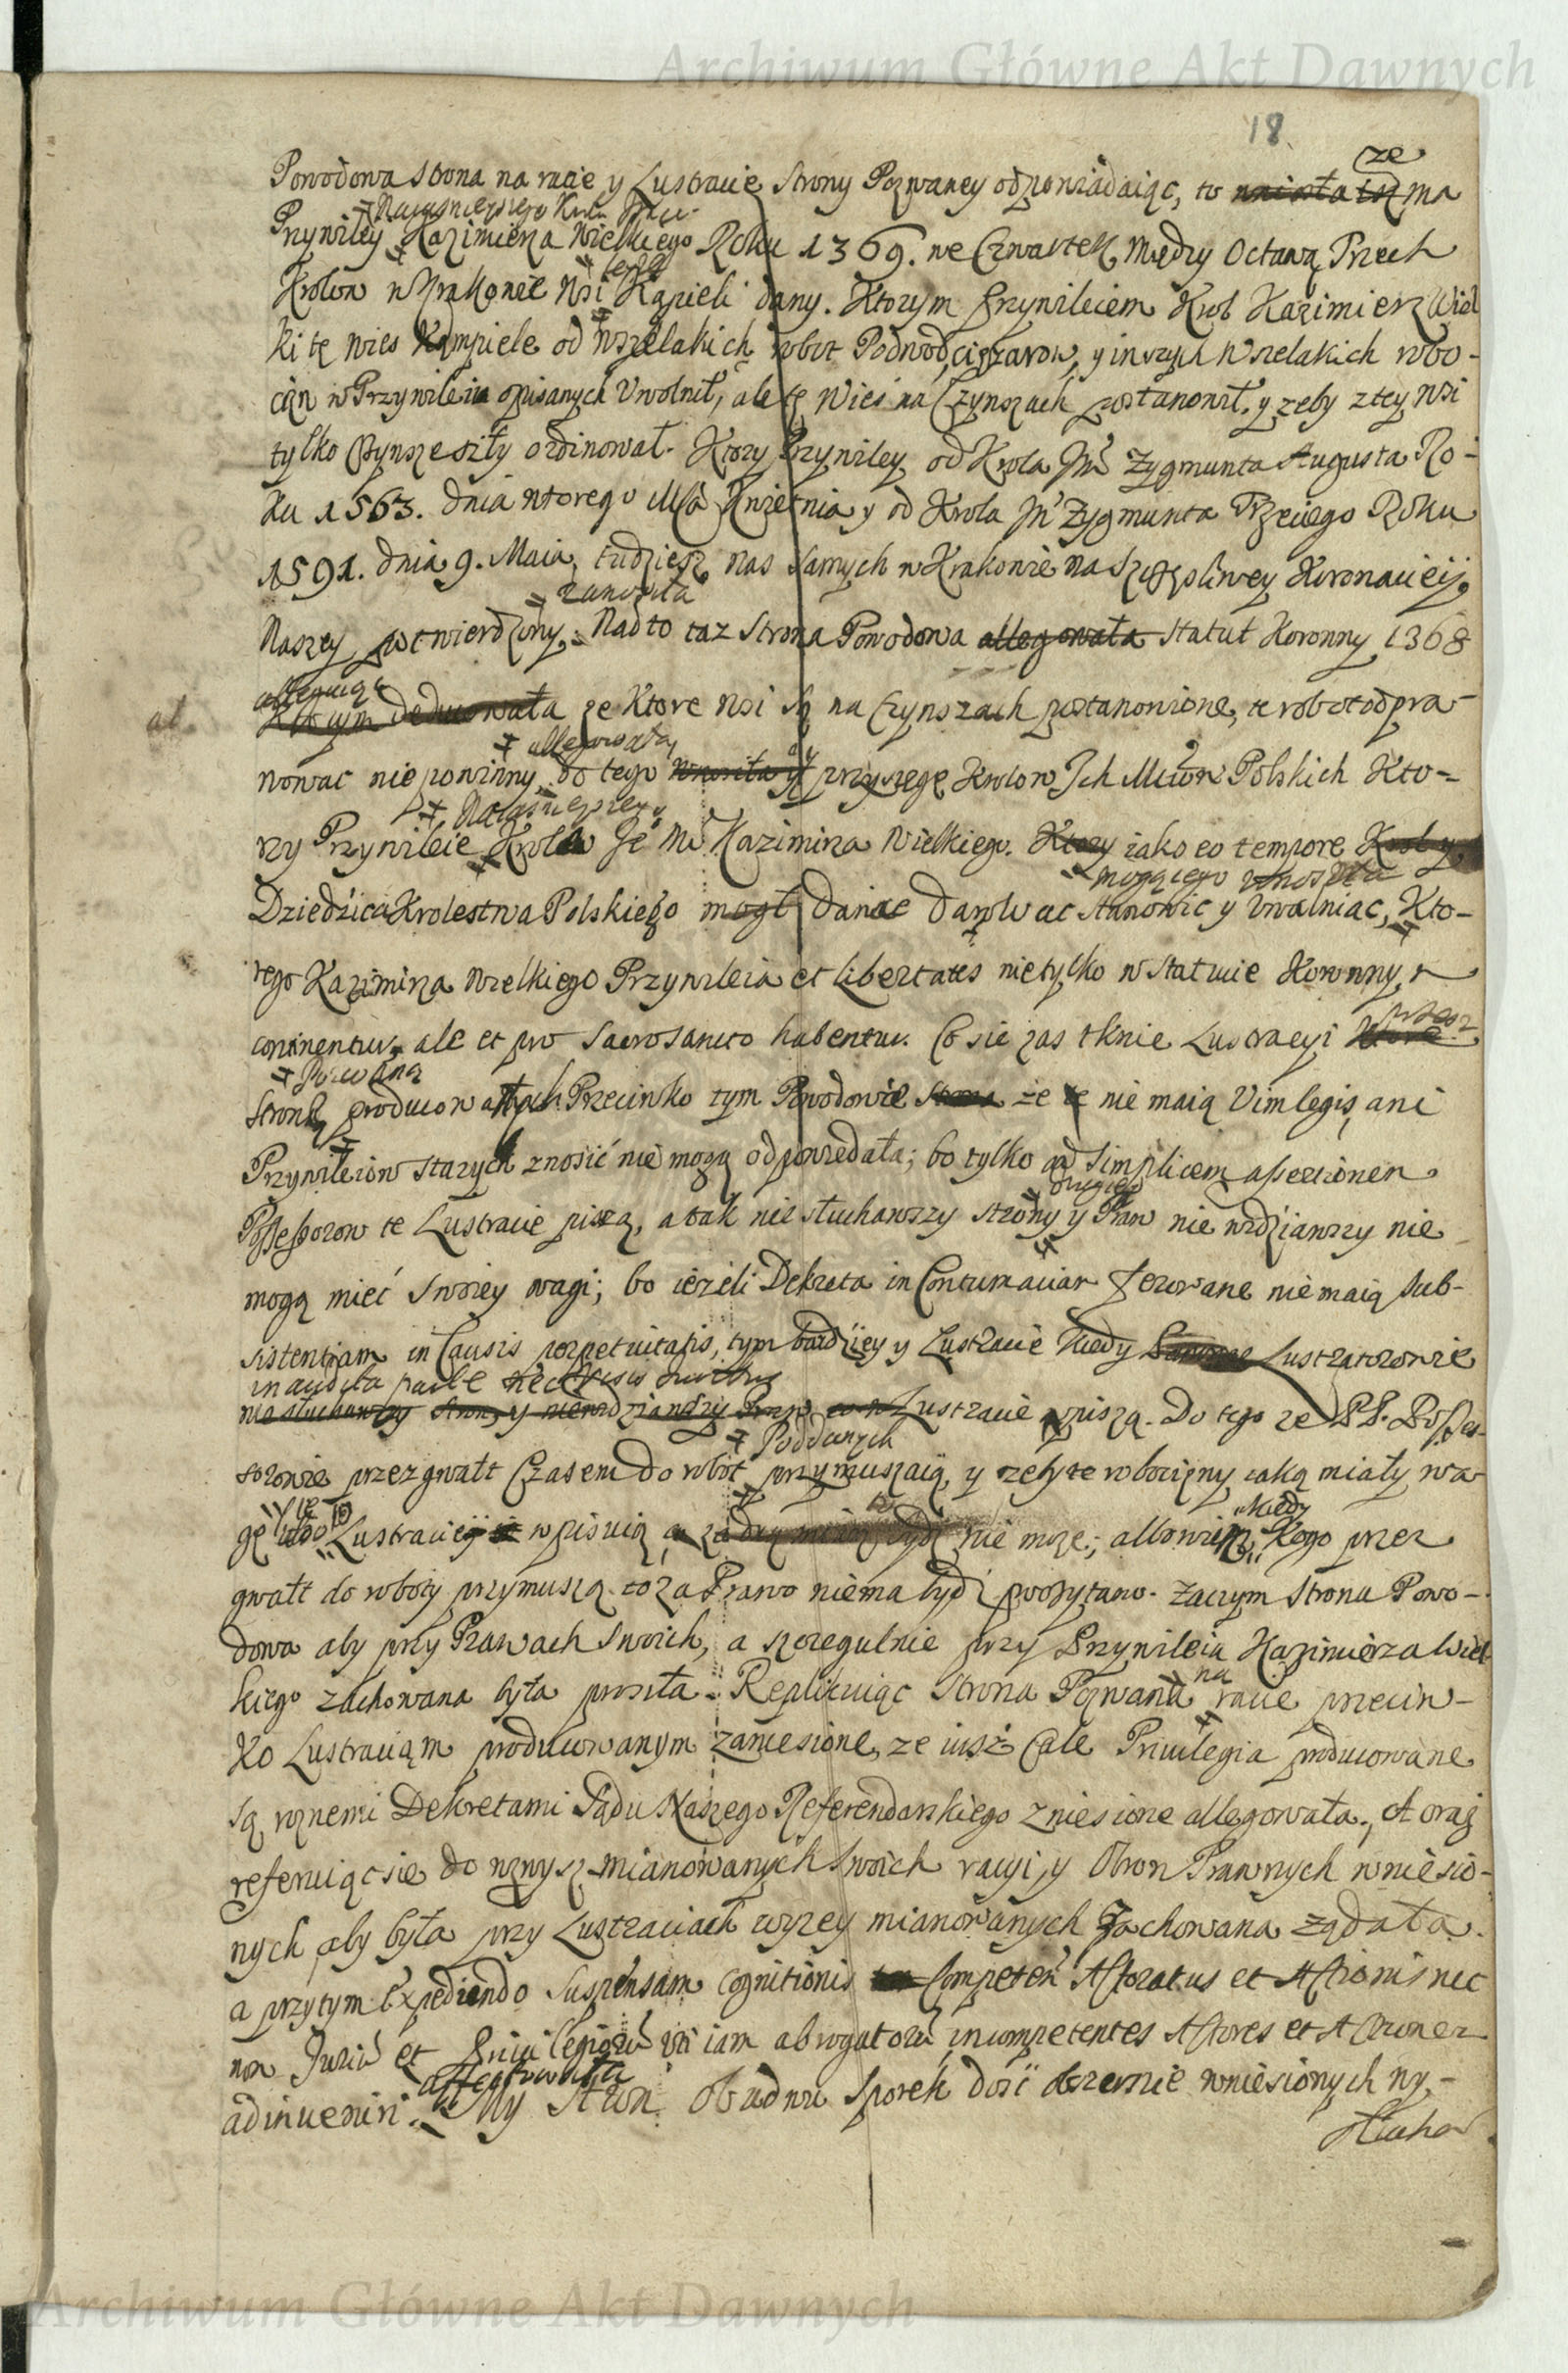 Archiwum Główne Akt Dawnych
18
że
Powodowa strona na racie y Lustracie strony Pozwaney odpowiadaiąc, to wniosła isz ma
Naiasnieyszego
Przywiley Kazimierza Wielkiego Roku 1369. we Czwartek Między Octawą Trzech
teyże
Krolow w Krakowie Wsi Kąpieli dany. Ktorym Przywileiem Krol Kazimierz Wiel
ki tę wies Kąmpiele od wszelakich robot Podwod, ciężarow, y inszych wszelakich robo-
cizn w Przywileiu opisanych Uwolnił, ale tę Wieś na Czynszach postanowił, y zeby z tey wsi
tylko Czynsze szły ordinował. Ktory Przywiley od Krola Jm̃ Zygmunta Augusta Ro-
ku 1563. dnia wtorego Mca Kwietnia y od Krola Jm̃ Zygmunta Trzeciego Roku
1591. dnia 9. Maia, tudziesz nas samych w Krakowie na Szczęsliwey Koronacieij
zanosiła
Naszey potwierdzony. Nadto taz Strona Powodowa allegowała Statut Koronny 1368
alleguiąc
al
Ktorym deducowała ze Ktore wsi są na Czynszach postanowione, te robot odpra-
allegowała
wowac nie powinny, do tego wnosiła y przysięgę Krolow Ich Mciow Polskich Kto-
Naiasnieyszego
rzy Przywileie Krola Je Mci Kazimirza Wielkiego. Ktory iako eo tempore Krol y
mogącego wnosiła
Dziedzica Krolestwa Polskiego mogł daniae darowac stanowic y Uwalniac, Kto-
rego Kazimirza Wielkiego Przywileia et libertates nie tylko w Statucie Koronnym
continentur, ale et pro Sacrosancto habentur. Co sie zas tknie Lustracyi Ktore
przesz
Pozwaną
Stronę producowanych Przeciwko tym Powodowie Strona że te nie maią Vim legis, ani
Przywileiow starych znosić nie mogą odpowiedała; bo tylko ad simplicem assertionem
drugiey
Possessorow te Lustracie piszą, a tak nie słuchawszy strony y Praw nie widziawszy nie
mogą mieć swoiey wagi; bo ieżeli Dekreta in Contumaciam ferowane nie maią sub-
sistentiam in Causis perpetuitatis, tym bardziey y Lustracie Kiedy Lustratorowie
inaudita parte nec visis
nie słuchawszy strony y niewidziawszy Praw Lustracie piszą. Do tego ze PP. Posses-
Poddanych
sorowie przez gwałt Czasem do robot przymuszaią, y zeby te robocizny iaką miały wa-
gę do Lustraciey wpisuią a za nie moze; albowiem Kogo przez
Kiedy
gwałt do roboty przymuszą to za Prawo niema bydź poczytano. Zaczym Strona Powo-
dowa aby przy Prawach swoich, a szczegulnie przy Przywileiu Kazimierza Wiel
kiego zachowana była prosiła. Replikuiąc Strona Pozwana racie przeciw-
na
ko Lustraciąm producowanym zaniesione, ze iusz Cale Priuilegia producowane
są roznemi Dekretami Sądu Naszego Referendarskiego zniesione allegowała, A oraz
referuiąc sie do wzwysz mianowanych swoich racyi, y Obron Prawnych wniesio-
nych aby była przy Lustraciach wyzey mianowanych Zachowana ządała.
a przytym Expediendo suspensam cognitionis Competen Actoratus et Actionis nec
non Juriũ et Priuilegiorũ iam abrogatorũ incompetentes Actores et Actiones
afectowała
adinueniri. My Stron Obudwu Sporek dość obszernie wniesionych wy-
słucha
Archiwum Główne Akt Dawnych